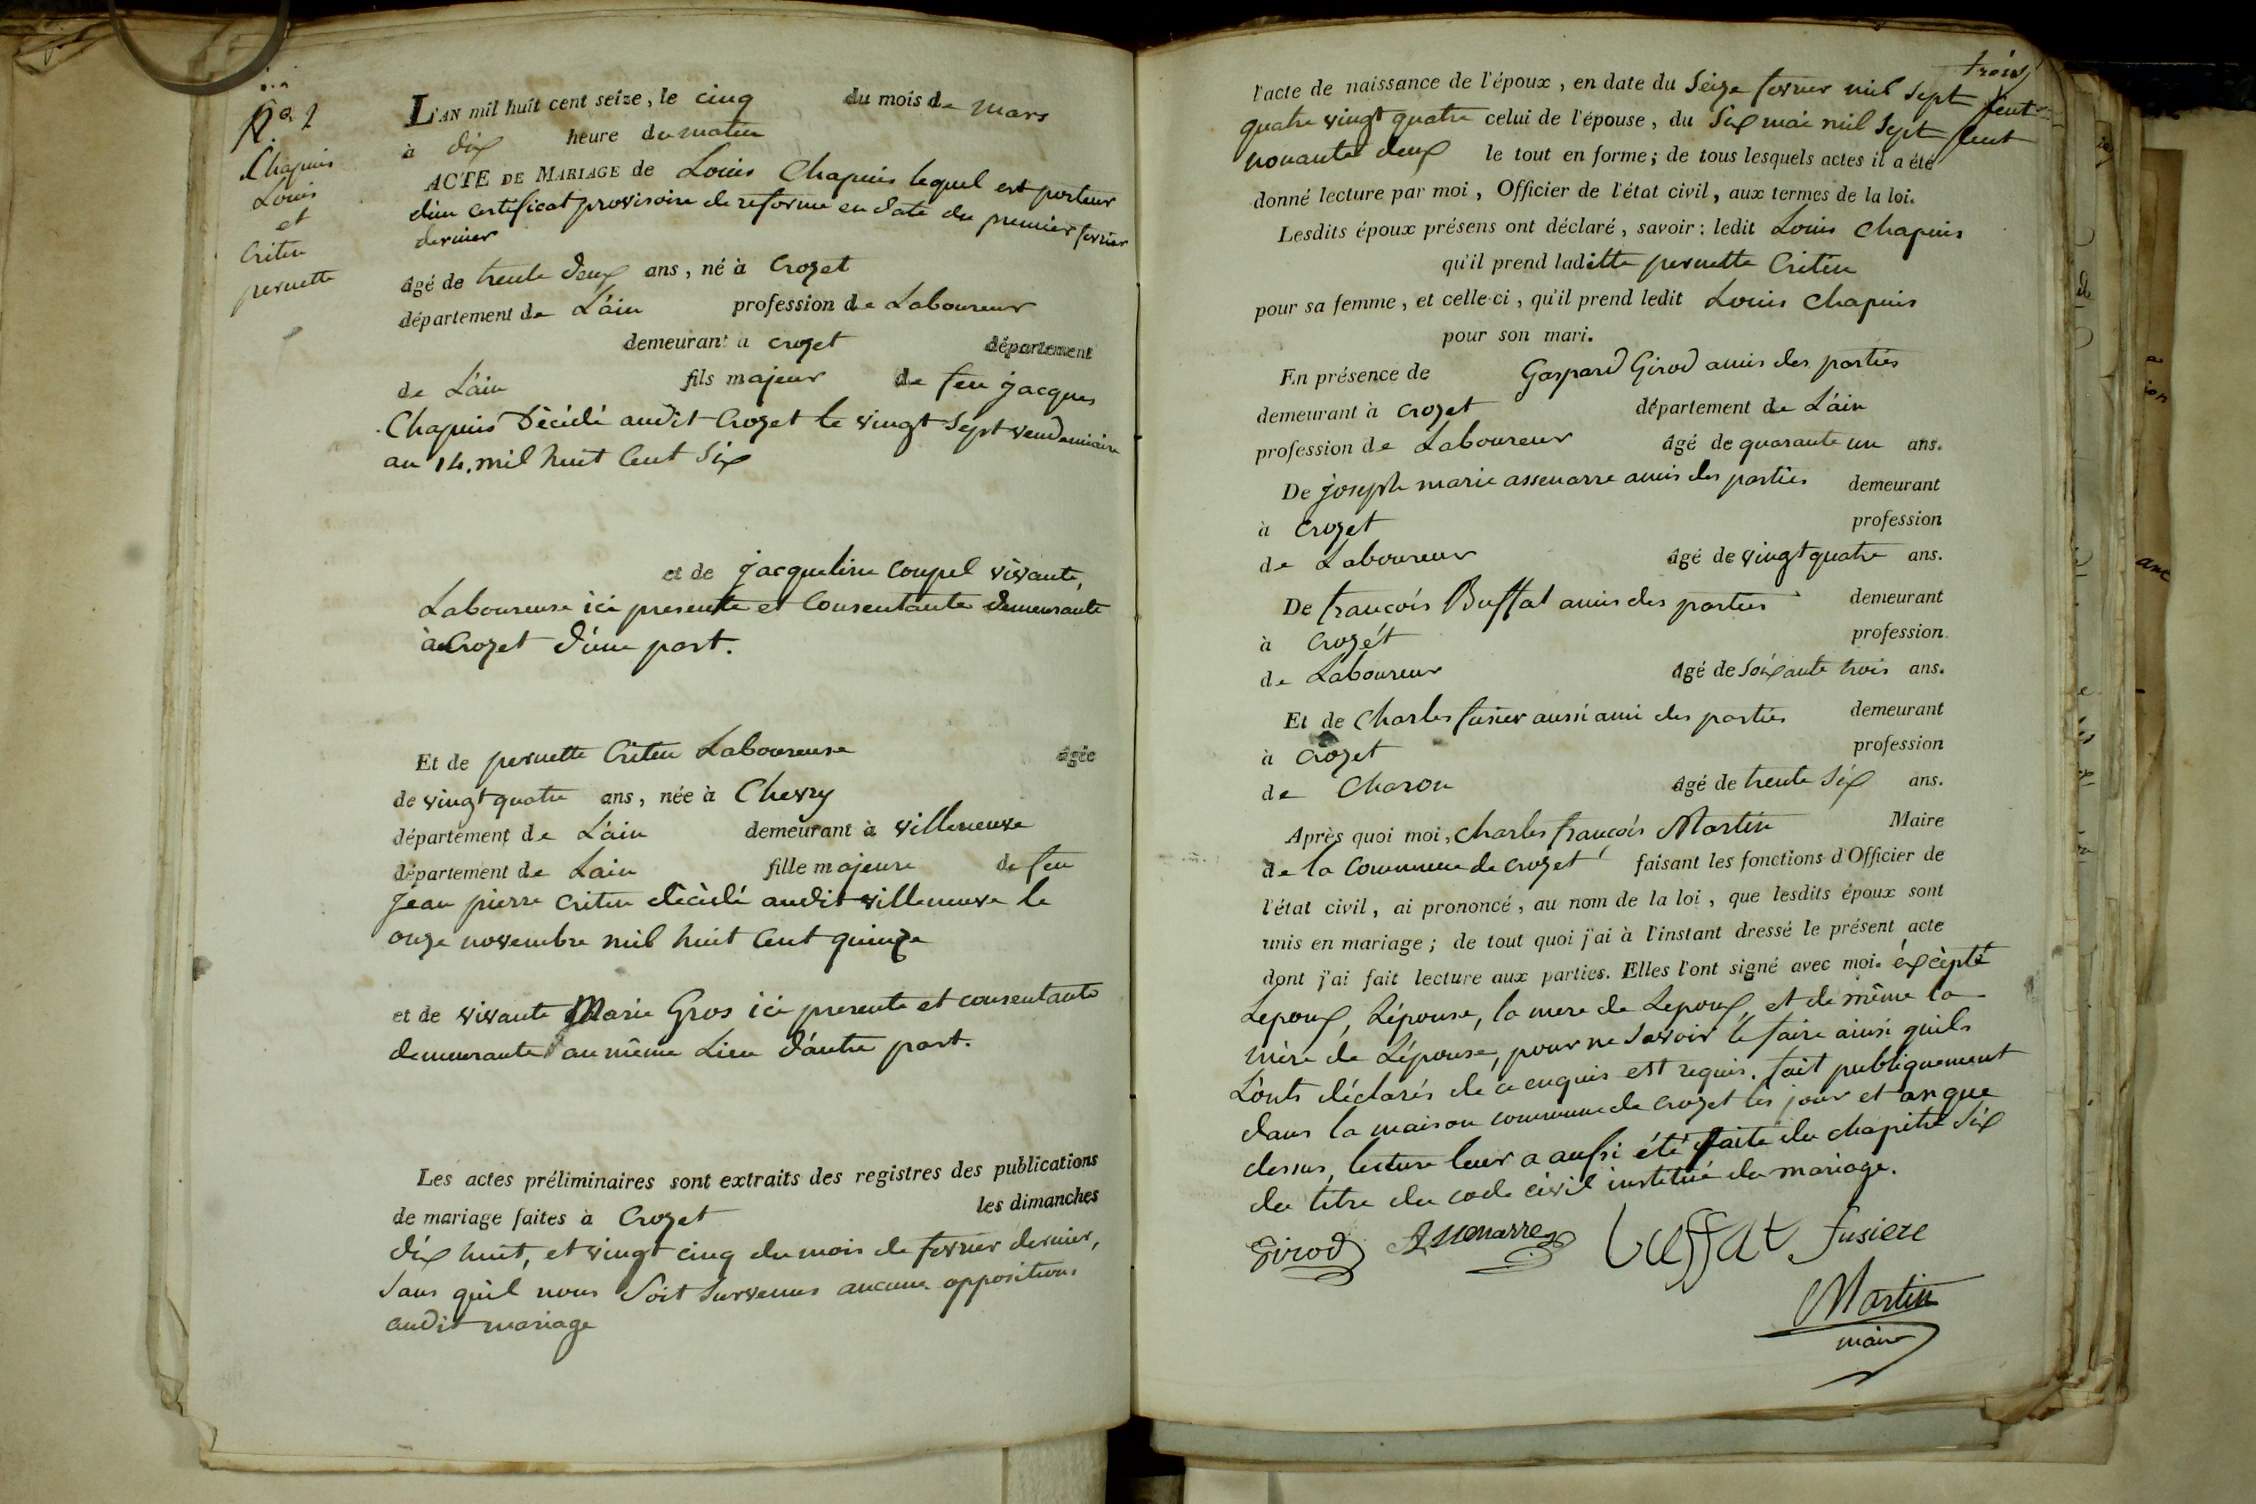 No. 2
Chapuis
Louis
et
Criten
pernette
L'AN mil huit cent seize, le cinq du mois de mars
à dix heure du matin
ACTE DE MARIAGE de Louis Chapuis lequel est porteur
d'un certificat provisoire de reforme en date du premier fevrier
dernier
âgé de trente deux ans, né à Crozet
département de L'ain profession de Laboureur
demeurant à crozet département
de L'ain fils majeur de feu jacques
Chapuis Dècédé audit Crozet le vingt sept vendemiaire
an 14. mil huit Cent Six
et de jacqueline Coupel vivante,
Laboureuse ici presente et Consentante demeurante
à Crozet d'une part.
Et de pernette Criten Laboureuse âgée
de vingt quatre ans, née à Chevry
département de L'ain demeurant à villeneuve
département de Lain fille majeure de feu
Jean pierre Criten décédé audit villeneuve le
onze novembre mil huit Cent quinze
et de vivante Marie Gros ici presente et consentante
demeurante au même Lieu d'autre part.
Les actes préliminaires sont extraits des registres des publications
de mariage faites à Crozet les dimanches
dix huit, et vingt cinq du mois de fevrier dernier,
Sans qu'il nous Soit Survenus aucune oppositions
audit mariage
trois
l'acte de naissance de l'époux, en date du Seize fevrier mil Sept Cent
quatre vingt quatre celui de l'épouse, du Six mai mil Sept Cent
nonante deux le tout en forme; de tous lesquels actes il a été
donné lecture par moi, Officier de l'état civil, aux termes de la loi.
Lesdits époux présens ont déclaré, savoir: ledit Louis Chapuis
qu'il prend ladite pernette Criten
pour sa femme, et celle-ci, qu'il prend ledit Louis Chapuis
pour son mari.
En présence de Gaspard Girod amis des parties
demeurant à crozet département de L'ain
profession de Laboureur âgé de quarante un ans.
De joseph marie assenarre amis des parties demeurant
à Crozet profession
de Laboureur âgé de vingt quatre ans.
De françois Buffat amis des parties demeurant
à Crozét profession
de Laboureur âgé de Soixante trois ans.
Et de Charles fusier aussi ami des parties demeurant
à Crozet profession
de Charon âgé de trente Six ans.
Après quoi moi, Charles françois Martin Maire
de la Commune de crozet faisant les fonctions d'Officier de
l'état civil, ai prononcé, au nom de la loi, que lesdits époux sont
unis en mariage; de tout quoi j'ai à l'instant dressé le présent acte
dont j'ai fait lecture aux parties. Elles l'ont signé avec moi. éxcèpté
Lepoux, Lépouse, la mere de Lepoux, et de même la
mère de Lépouse, pour ne Savoir le faire ainsi quils
L'onts déclarés de ce enquis est requis. fait publiquement
dans la maison commune de crozet les jour et an que
dessus, lecture leur a aussi été faite du chapitre Six
du titre du code civil institué du mariage.
Girod Assenarre buffat fusiere
Martin
maire